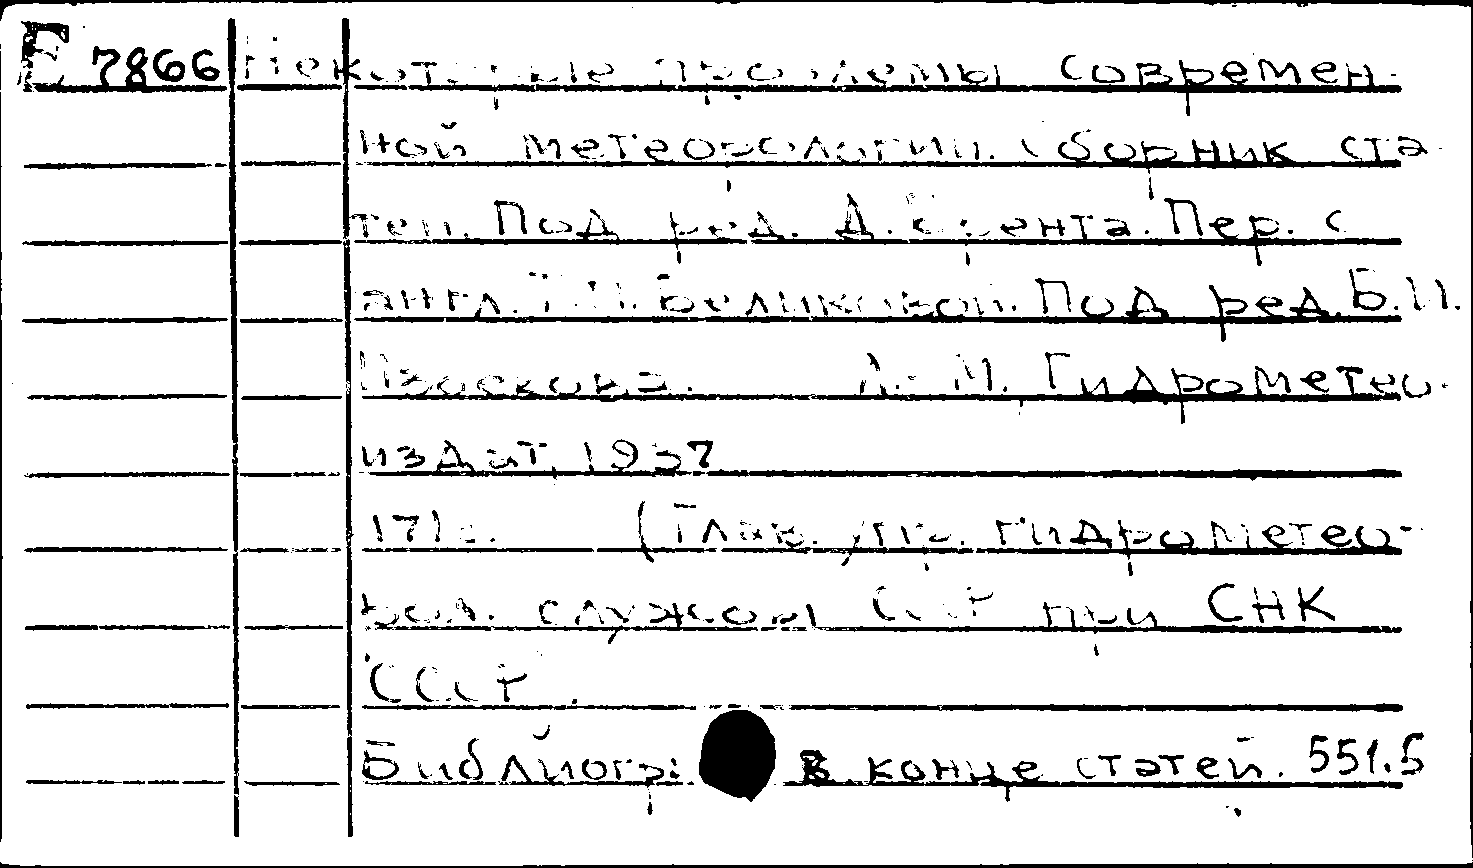 Е 7866 Некоторые проблемы современ-
ной метеорологии. Сборник ста-
тей. Под ред. Д. Брента. Пер. с
англ. Беликовой. Под ред. Б.И.
Извекова. Л.-М. Гидрометео-
издат, 1937
171с. (Глав. упр. гидрометео-
рол. службы СССР при СНК
СССР.
Библиогр: в конце статей. 551.5